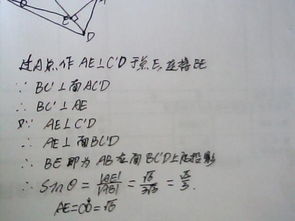 D
过A点作 AE⊥C'D 于点E, 连接BE
∵ BC'⊥面AC'D
∴ BC'⊥AE
又∵ AE⊥C'D
∴ AE⊥面BC'D
∴ BE即为AB在面BC'D上的投影
∴ Sinθ = |AE| / |AB| = √6 / 3√3 = √2 / 3.